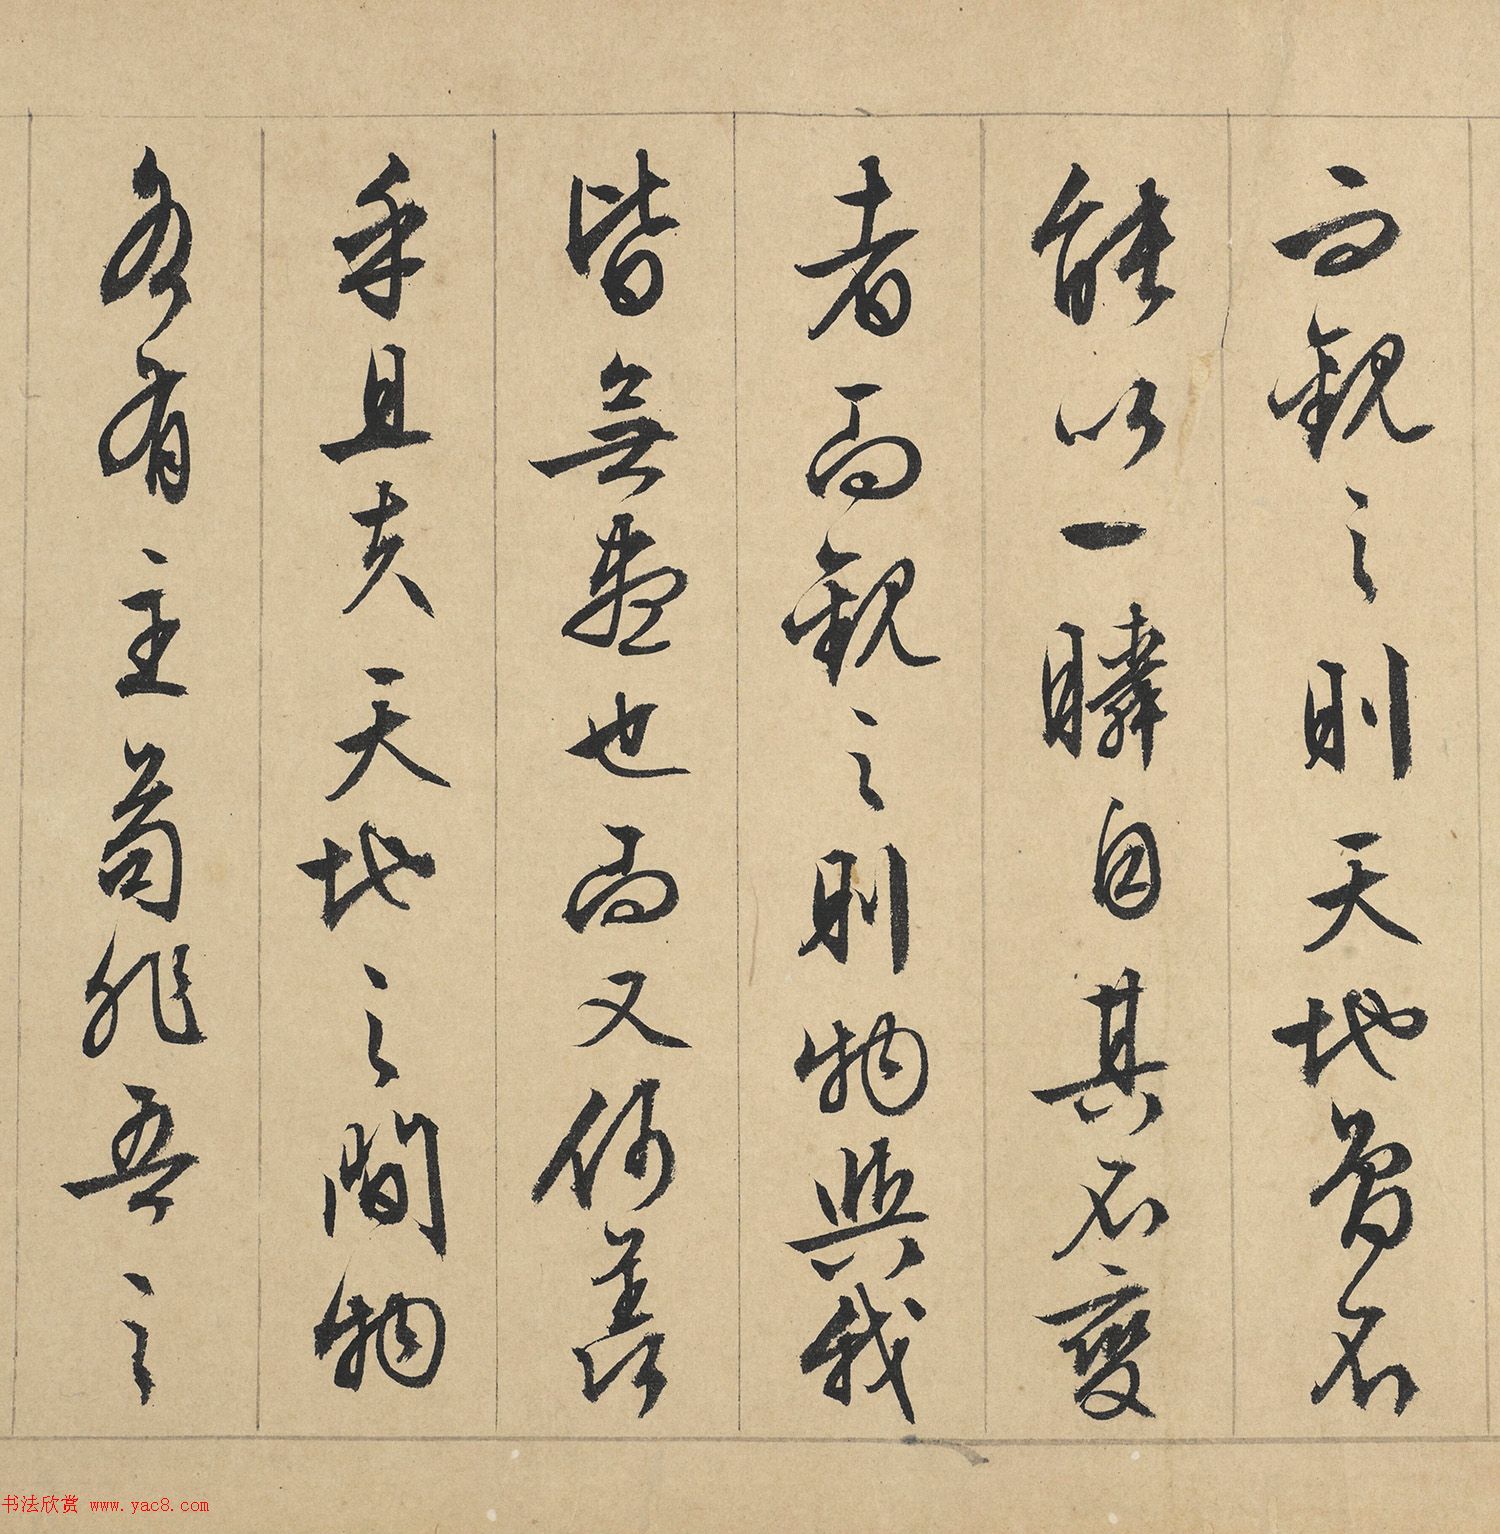 而觀之則天地曾不
能以一瞬自其不變
者而觀之則物與我
皆無盡也而又何羨
乎且夫天地之間物
各有主苟非吾之
书法欣赏 www.yac8.com